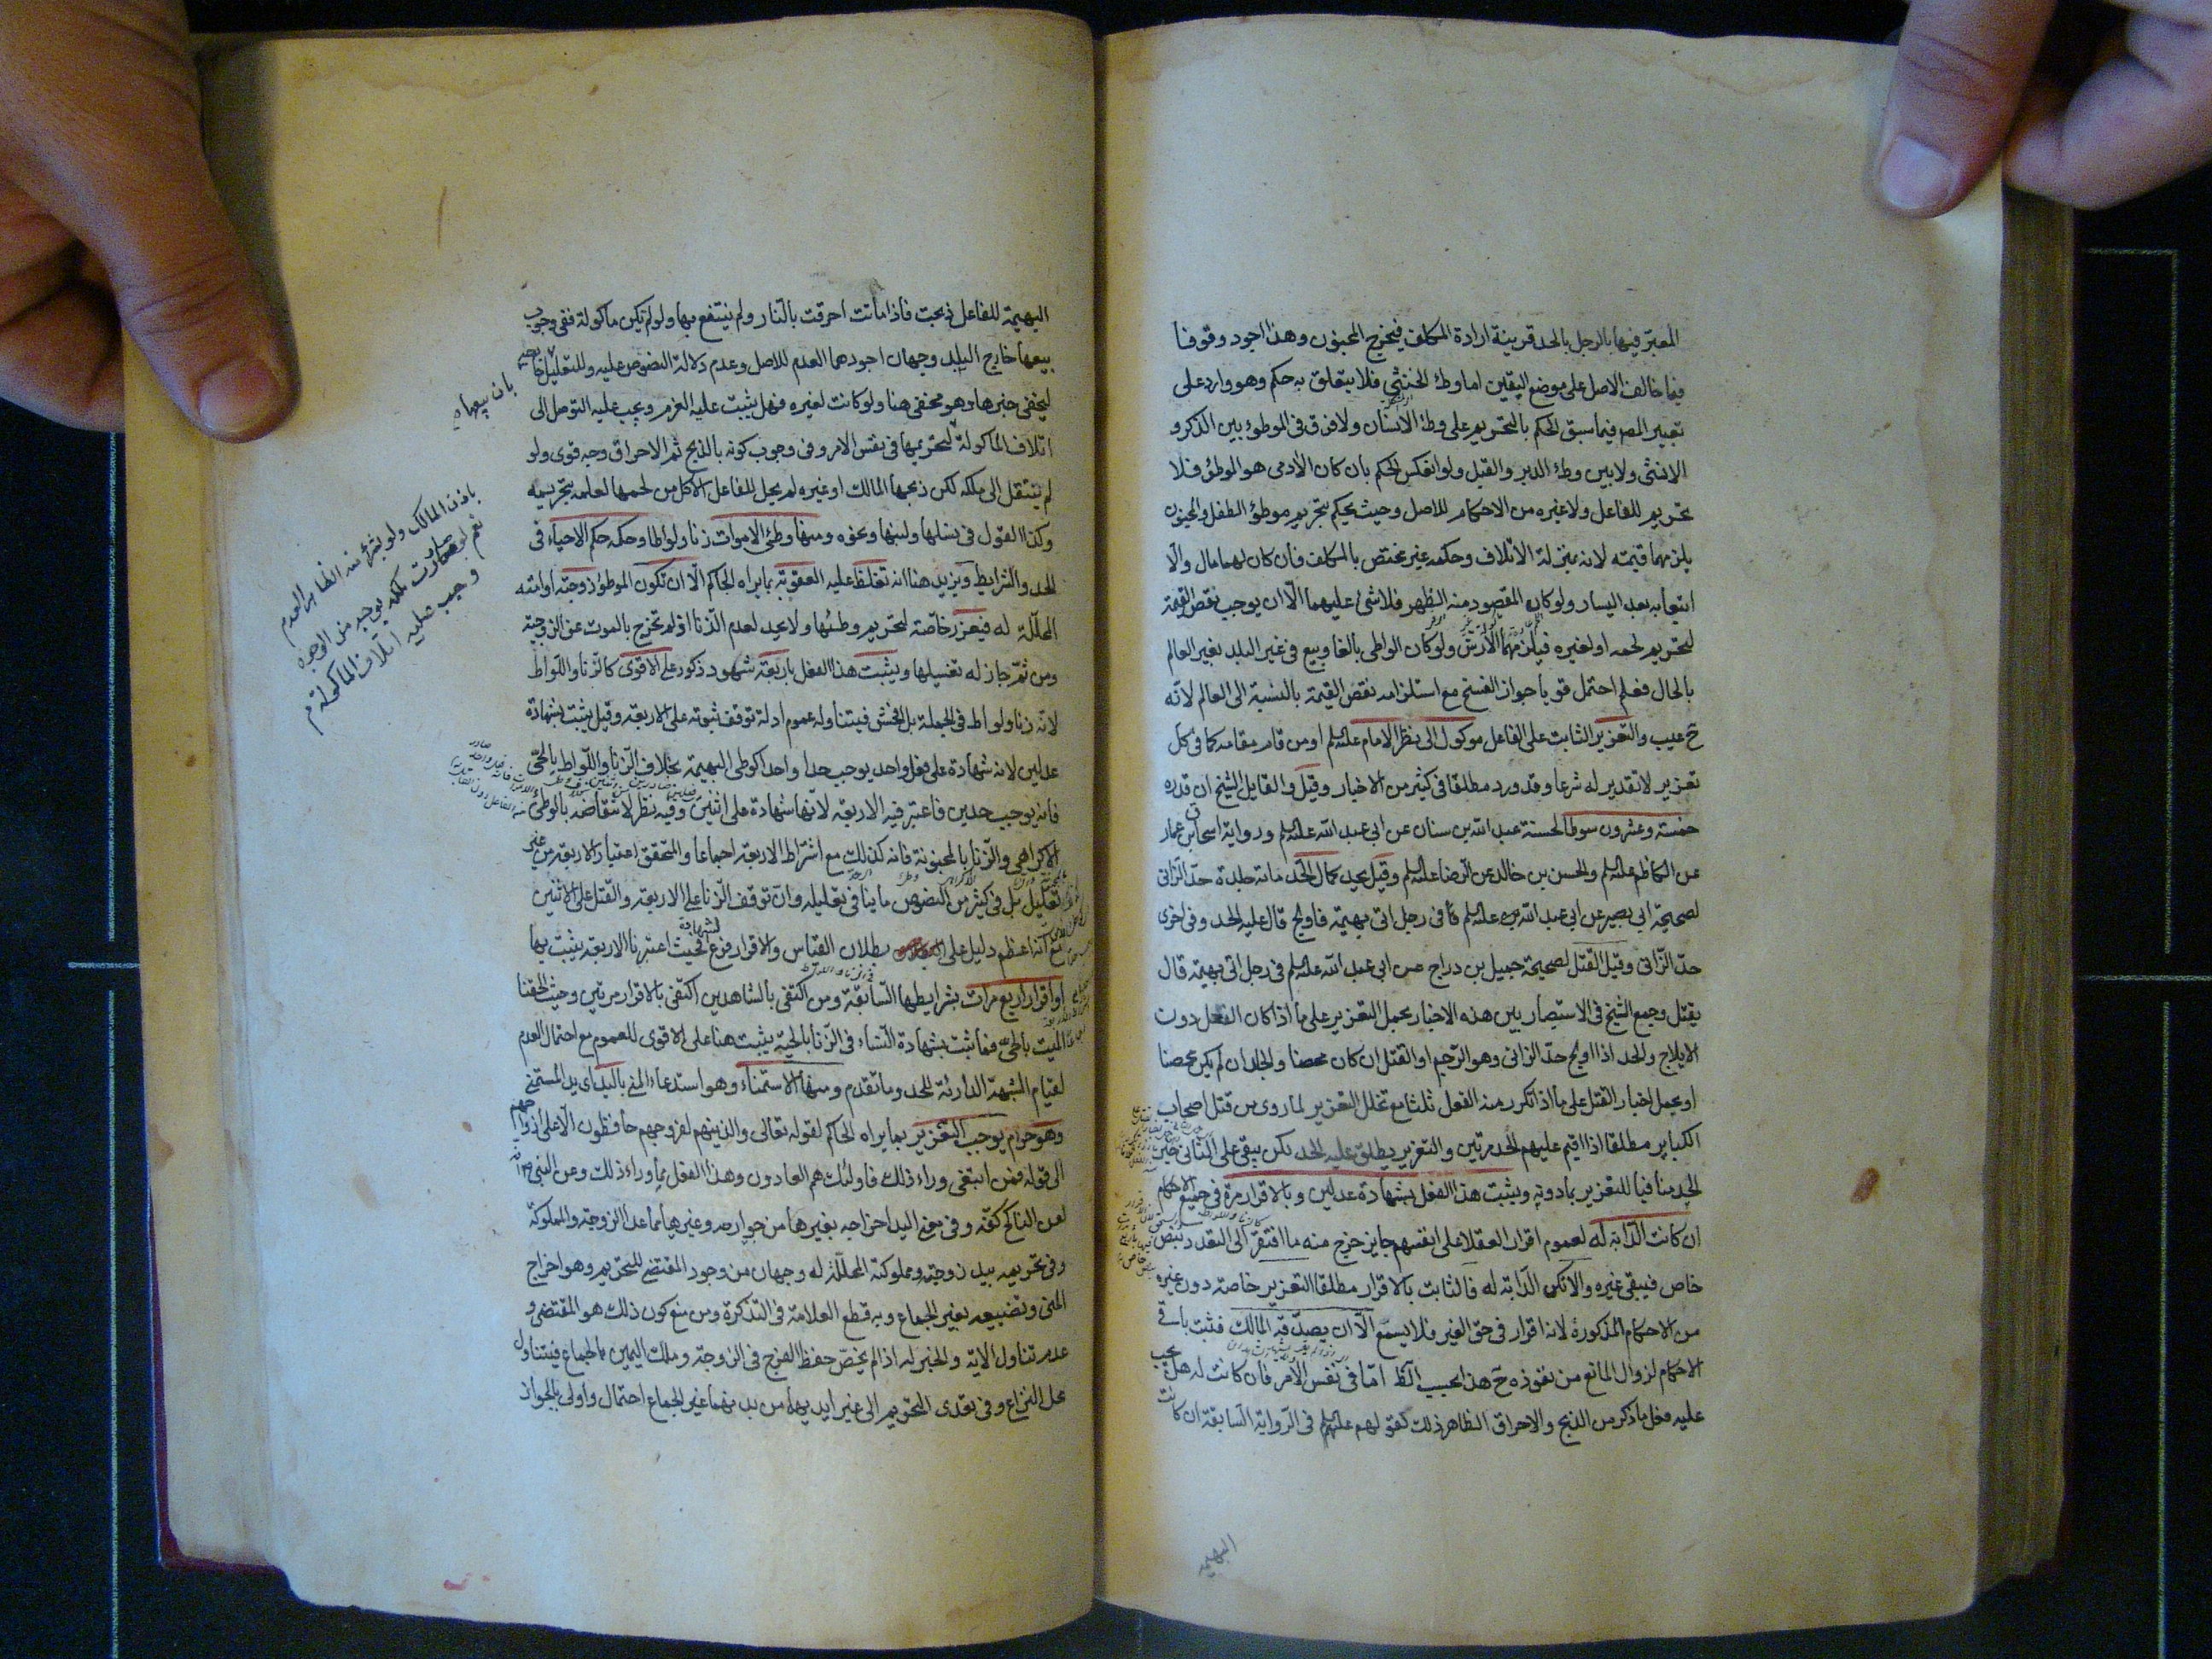 المعبّر فيها بالرجل بالحد قرينة ارادة المكلف فيخرج المجنون وهذا اجود وقوفا
فيما خالف الاصل على موضع اليقين اما وطئ الخنثى فلا يتعلق به حكم وهو وارد على
تعبير المص فيما سبق الحكم بالتحريم على وطئ الانسان ولا فرق في الموطوء بين الذكر و
الانثى ولا بين وطئ الدبر والقبل ولو انعكس الحكم بان كان الآدمي هو الموطوء فلا
تحريم للفاعل ولا غيره من الاحكام للاصل وحيث يحكم بتحريم موطوء الطفل والمجنون
يلزمهما قيمته لانه بمنزلة الاتلاف وحكمه غير مختص بالمكلف فان كان لهما مال والّا
اتبعا به بعد اليسار ولو كان المقصود منه الظهر فلا شئ عليهما الّا ان يوجب نقص القيمة
لتحريم لحمه او لغيره فيلزمهما الأرش ولو كان الواطى بالغا وبيع في غير البلد لغير العالم
بالحال فعلم احتمل قويا جواز الفسخ مع استلزامه نقص القيمة بالنسبة الى العالم لانّه
ح عيب والتعزير الثابت على الفاعل موكول الى نظر الامام عليه السلم او من قام مقامه كما في كل
تعزير لا تقدير له شرعا وقد ورد مطلقا في كثير من الاخبار وقيل والقايل الشيخ ان قدره
خمسة وعشرون سوطا لحسنة عبد الله بن سنان عن ابى عبد الله عليه السلم ورواية اسحاق بن عمار
عن الكاظم عليه السلم والحسن بن خالد عن الرضا عليه السلم وقيل يحد كمال الحد مائة جلدة حدّ الزّانى
لصحيحة ابى بصير عن ابى عبد الله عليه السلم في رجل اتى بهيمة فاولج قال عليه الحد وفي اخرى
حدّ الزّانى وقيل القتل لصحيحة جميل بن دراج عن ابى عبد الله عليه السلم في رجل اتى بهيمة قال
يقتل وجمع الشيخ في الاستبصار بين هذه الاخبار بحمل التعزير على ما اذا كان الفعل دون
الايلاج والحد اذا اولج حدّ الزانى وهو الرّجم او القتل ان كان محصنا والجلد ان لم يكن محصنا
او بحمل اخبار القتل على ما اذا تكرر منه الفعل ثلثا مع تخلل التعزير لما روى من قتل اصحاب
الكباير مطلقا اذا اقيم عليهم الحد مرتين والتعزير يطلق عليه الحد لكن يبقى على الثانى خبر
الحد منافيا للتعزير بما دونه ويثبت هذا الفعل بشهادة عدلين وبالاقرار مرة في جميع الاحكام
ان كانت الدّابة له لعموم اقرار العقلاء على انفسهم جايز خرج منه ما افتقر الى التعدد بنص
خاص فيبقى غيره والا تكن الدّابة له فالثابت بالاقرار مطلقا التعزير خاصة دون غيره
من الاحكام المذكورة لانه اقرار في حق الغير فلا يسمع الّا ان يصدّقه المالك فتثبت باقى
الاحكام لزوال المانع من نفوذه ح هذا بحسب الظ امّا في نفس الأمر فان كانت له هل يجب
عليه فعل ما ذكر من الذبح والاحراق الظاهر ذلك لقولهم عليهم السلم في الرّواية السّابقة ان كانت
البهيمه
البهيمة للفاعل ذبحت فاذا ماتت احرقت بالنّار ولم ينتفع بها ولو لم تكن ماكولة ففي وجوب
بيعها خارج البلد وجهان اجودهما العدم للاصل وعدم دلالة النصوص عليه وللتعليل
بان بيعها
ليخفى خبرها وهو مخفى هنا ولو كانت لغيره فهل يثبت عليه الغرم ويجب عليه التوصل الى
اتلاف الماكولة لتحريمها في نفس الامر وفي وجوب كونه بالذبح ثم الاحراق وجه قوى ولو
لم تنتقل الى ملكه لكن ذبحها المالك او غيره لم يحل للفاعل الأكل من لحمها لعلمه بتحريمه
وكذا القول في نسلها ولبنها ونحوه ومنها وطئ الاموات زنا ولواطا وحكمه حكم الاحياء في
الحد والشرايط ويزيد هنا انه تغلظ عليه العقوبة بما يراه الحاكم الّا ان تكون الموطوءة زوجته او امته
المحلّلة له فيعزر خاصّة لتحريم وطئها ولا يحد لعدم الزنا اذ لم تخرج بالموت عن الزوجية
ومن ثمّ جاز له تغسيلها ويثبت هذا الفعل باربعة شهود ذكور على الاقوى كالزنا واللواط
لانّه زنا ولواط في الجملة بل افحش فيتناوله عموم ادلة توقف ثبوته على الاربعة وقيل يثبت بشهادة
عدلين لانه شهادة على فعل واحد يوجب حدا واحدا كوطى البهيمة بخلاف الزنا واللواط بالحىّ
فانه يوجب حدين فاعتبر فيه الاربعة لانّها شهادة على اثنين وفيه نظر لانتقاضه بالوطئ
الاكراهى والزنا بالمجنونة فانه كذلك مع اشتراط الاربعة اجماعا والمتحقق اعتبار الاربعة من غير
تعليل بل في كثير من النصوص ما ينافي تعليله وان توقف الزنا على الاربعة والقتل على الاثنين
مع انّه اعظم دليل على بطلان القياس والاقرار فرع الشهادة فحيث اعتبرنا الاربعة يثبت بها
او اقرار اربع مرات بشرايطها السّابقة ومن اكتفى بالشاهدين اكتفى بالاقرار مرتين وحيث الحقنا
الميت بالحىّ فما يثبت بشهادة النساء في الزنا بالحيّة يثبت هنا على الاقوى للعموم مع احتمال العدم
لقيام الشبهة الدارئة للحد وما تقدم ومنها الاستمناء وهو استدعاء المنى باليد اى يد المستمنى
وهو حرام يوجب التعزير بما يراه الحاكم لقوله تعالى والذين هم لفروجهم حافظون الّا على ازواجهم
الى قوله فمن ابتغى وراء ذلك فاولئك هم العادون وهذا الفعل مما وراء ذلك وعن النبى
لعن الناكح كفّه وفي معنى اليد اخراجه بغيرها من جوارحه وغيرها مما عدا الزوجة والمملوكة
وفي تحريمه بيد زوجته ومملوكته المحلّلة له وجهان من وجود المقتضى للتحريم وهو اخراج
المنى وتضييعه بغير الجماع وبه قطع العلامة في التذكرة ومن منع كون ذلك هو المقتضى و
عدم تناول الآية والخبر له اذ لم يخصّ حفظ الفرج في الزوجة وملك اليمين بالجماع فيتناول
محل النزاع وفي تعدى التحريم الى غير ايديهما من بدنهما غير الجماع احتمال واولى بالجواز
باذن المالك
نعم لو صارت ملكه بوجه من الوجوه
وجب عليه اتلاف الماكولة